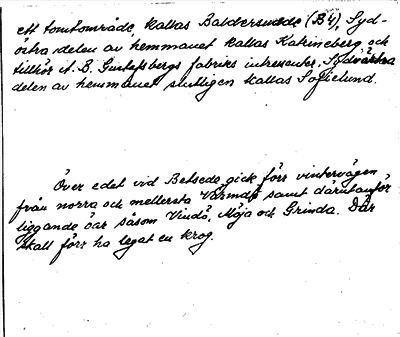 ett tomtområde, kallas Baldersnäde (B4), Syd-
östra delen av hemmanet kallas Katrineberg och
tillhör A. B. Gustafsbergs fabriks intressenter. Sydvästra
delen av hemmanet slutligen kallas Sofielund.
Över edet vid Betsede gick förr vintervägen
från norra och mellersta Värmdö samt därutanför
liggande öar såsom Vindö, Möja och Grinda. Där
skall förr ha legat en krog.